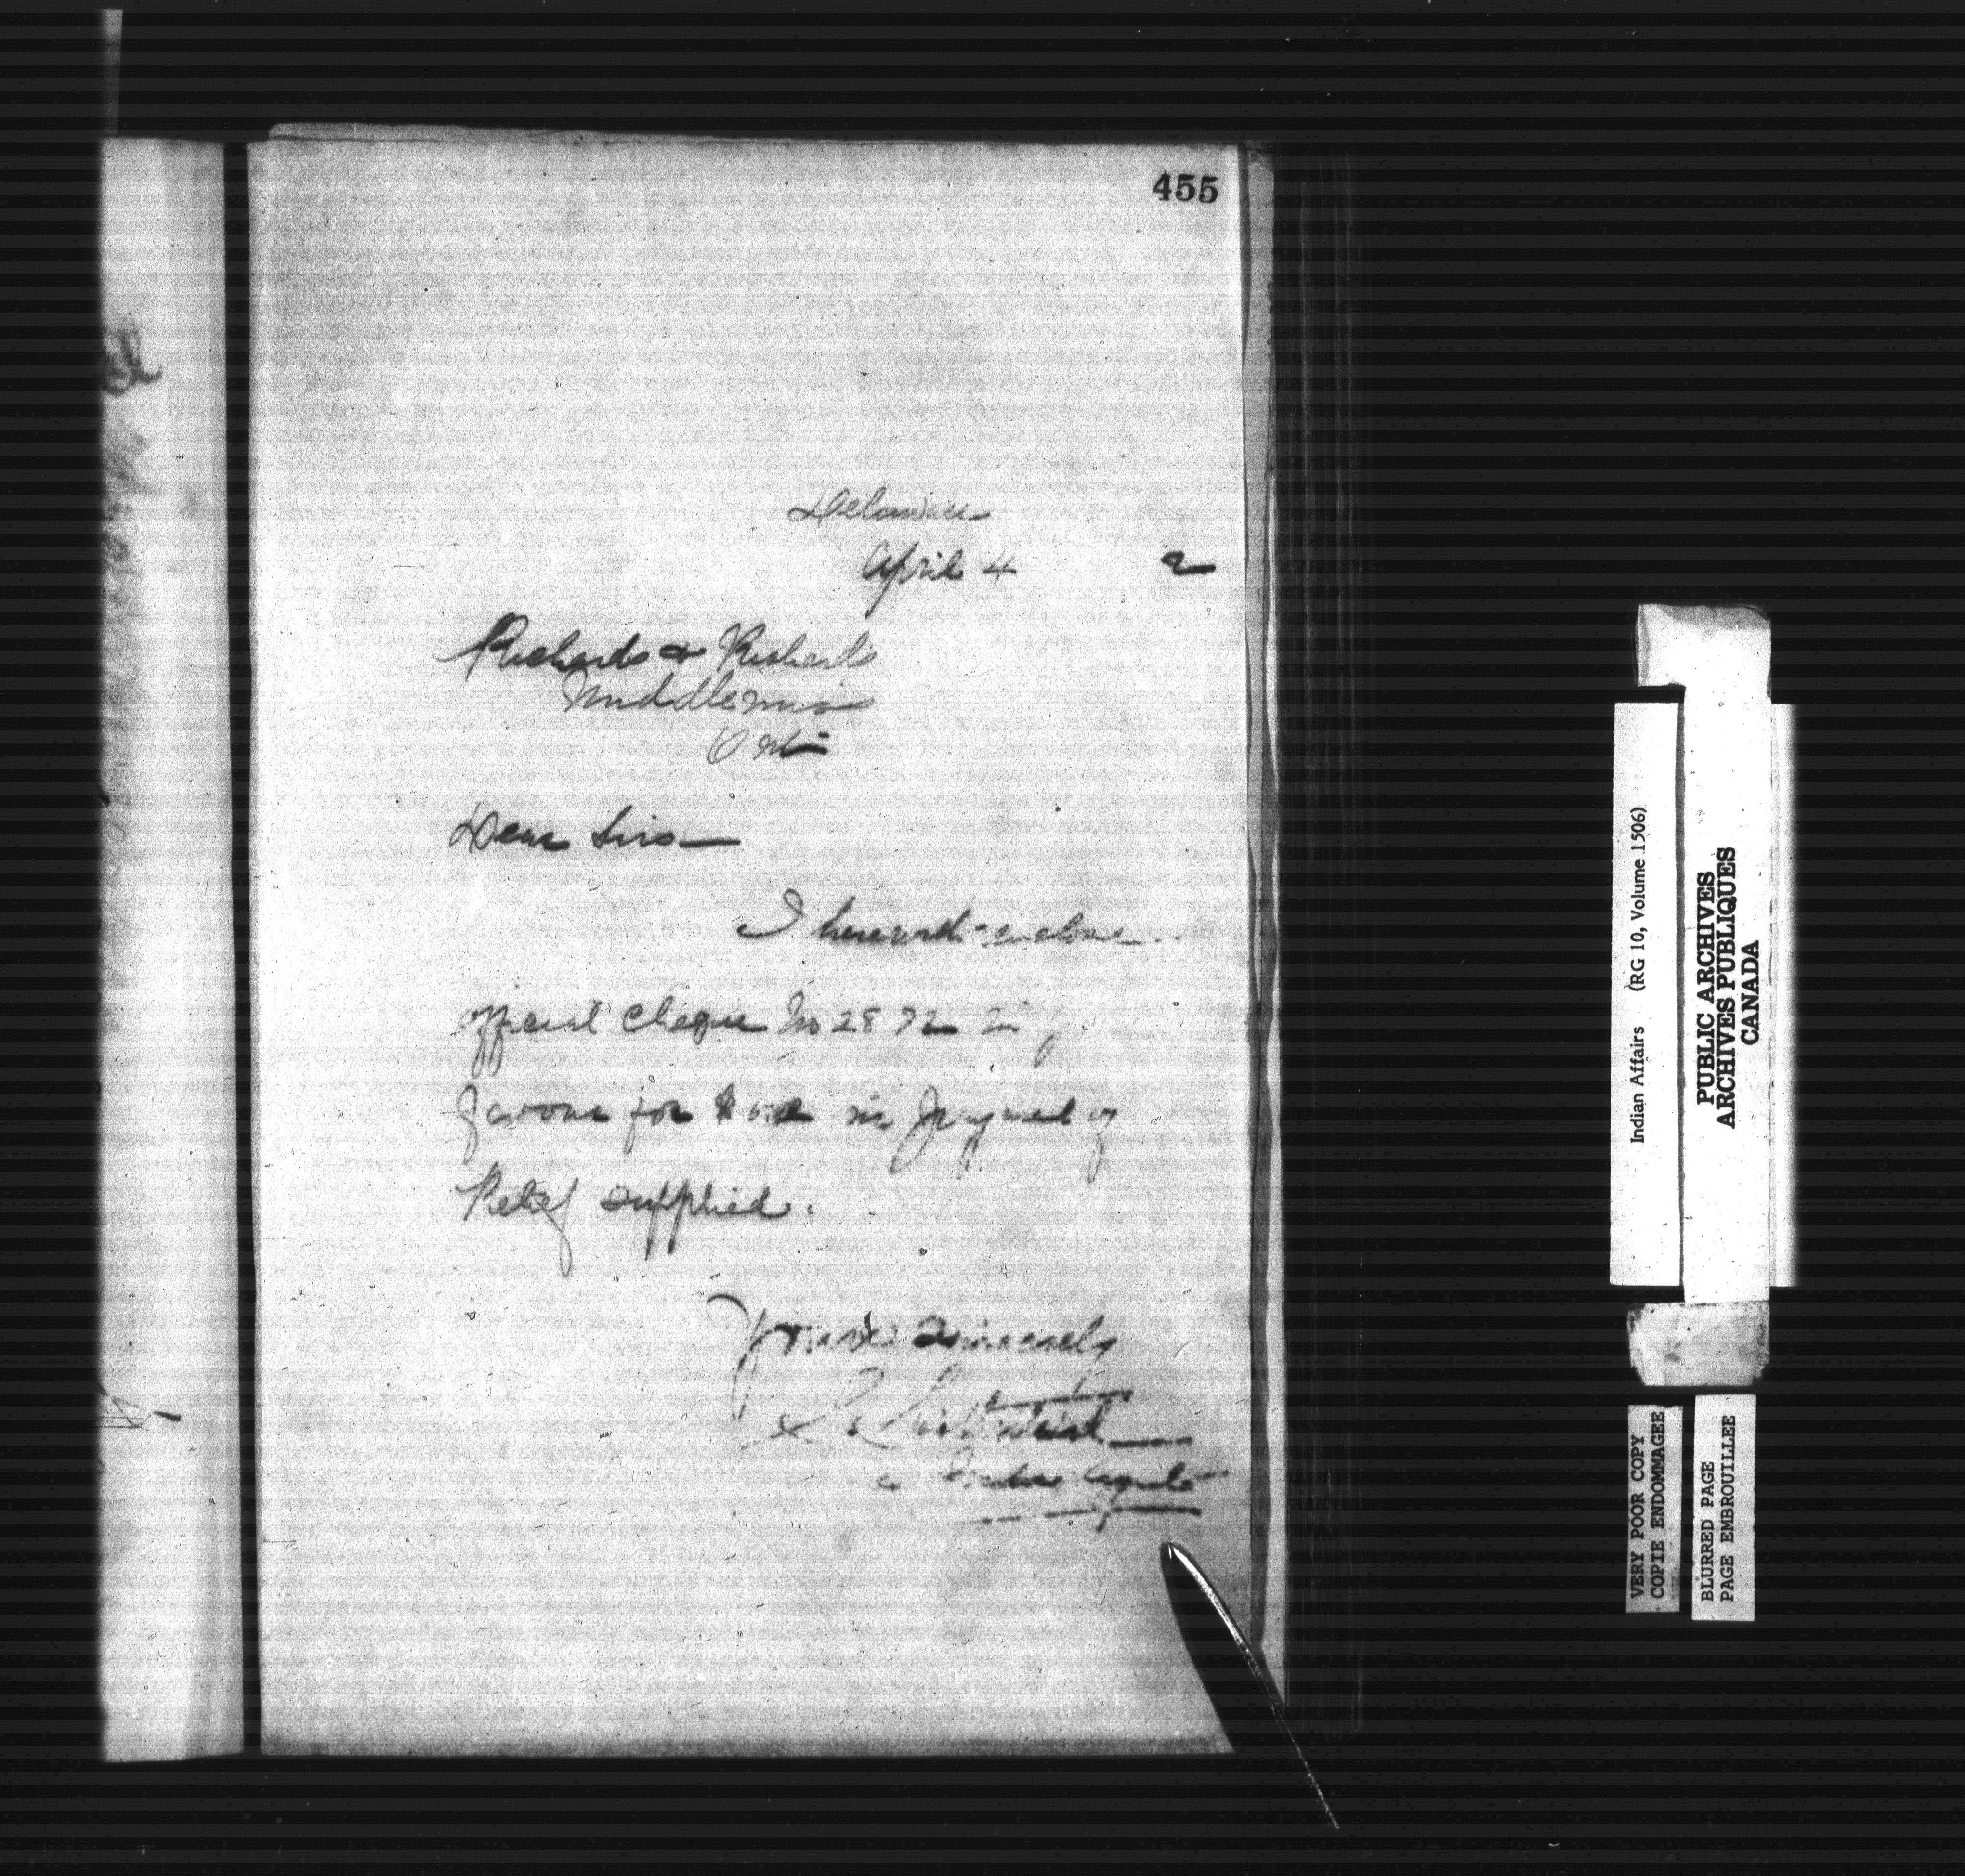 455
Delaware
April 4 2
Richards & Richards
Middlemiss
Ont
Dear Sirs
I herewith enclose
official cheque No 2872 in
favour for $ in payment of
Relief supplied.
Yours sincerely
Indian Agent
Indian Affairs (RG 10, Volume 1506)
PUBLIC ARCHIVES
ARCHIVES PUBLIQUES
CANADA
VERY POOR COPY
COPIE ENDOMMAGEE
BLURRED PAGE
PAGE EMBROUILLEE